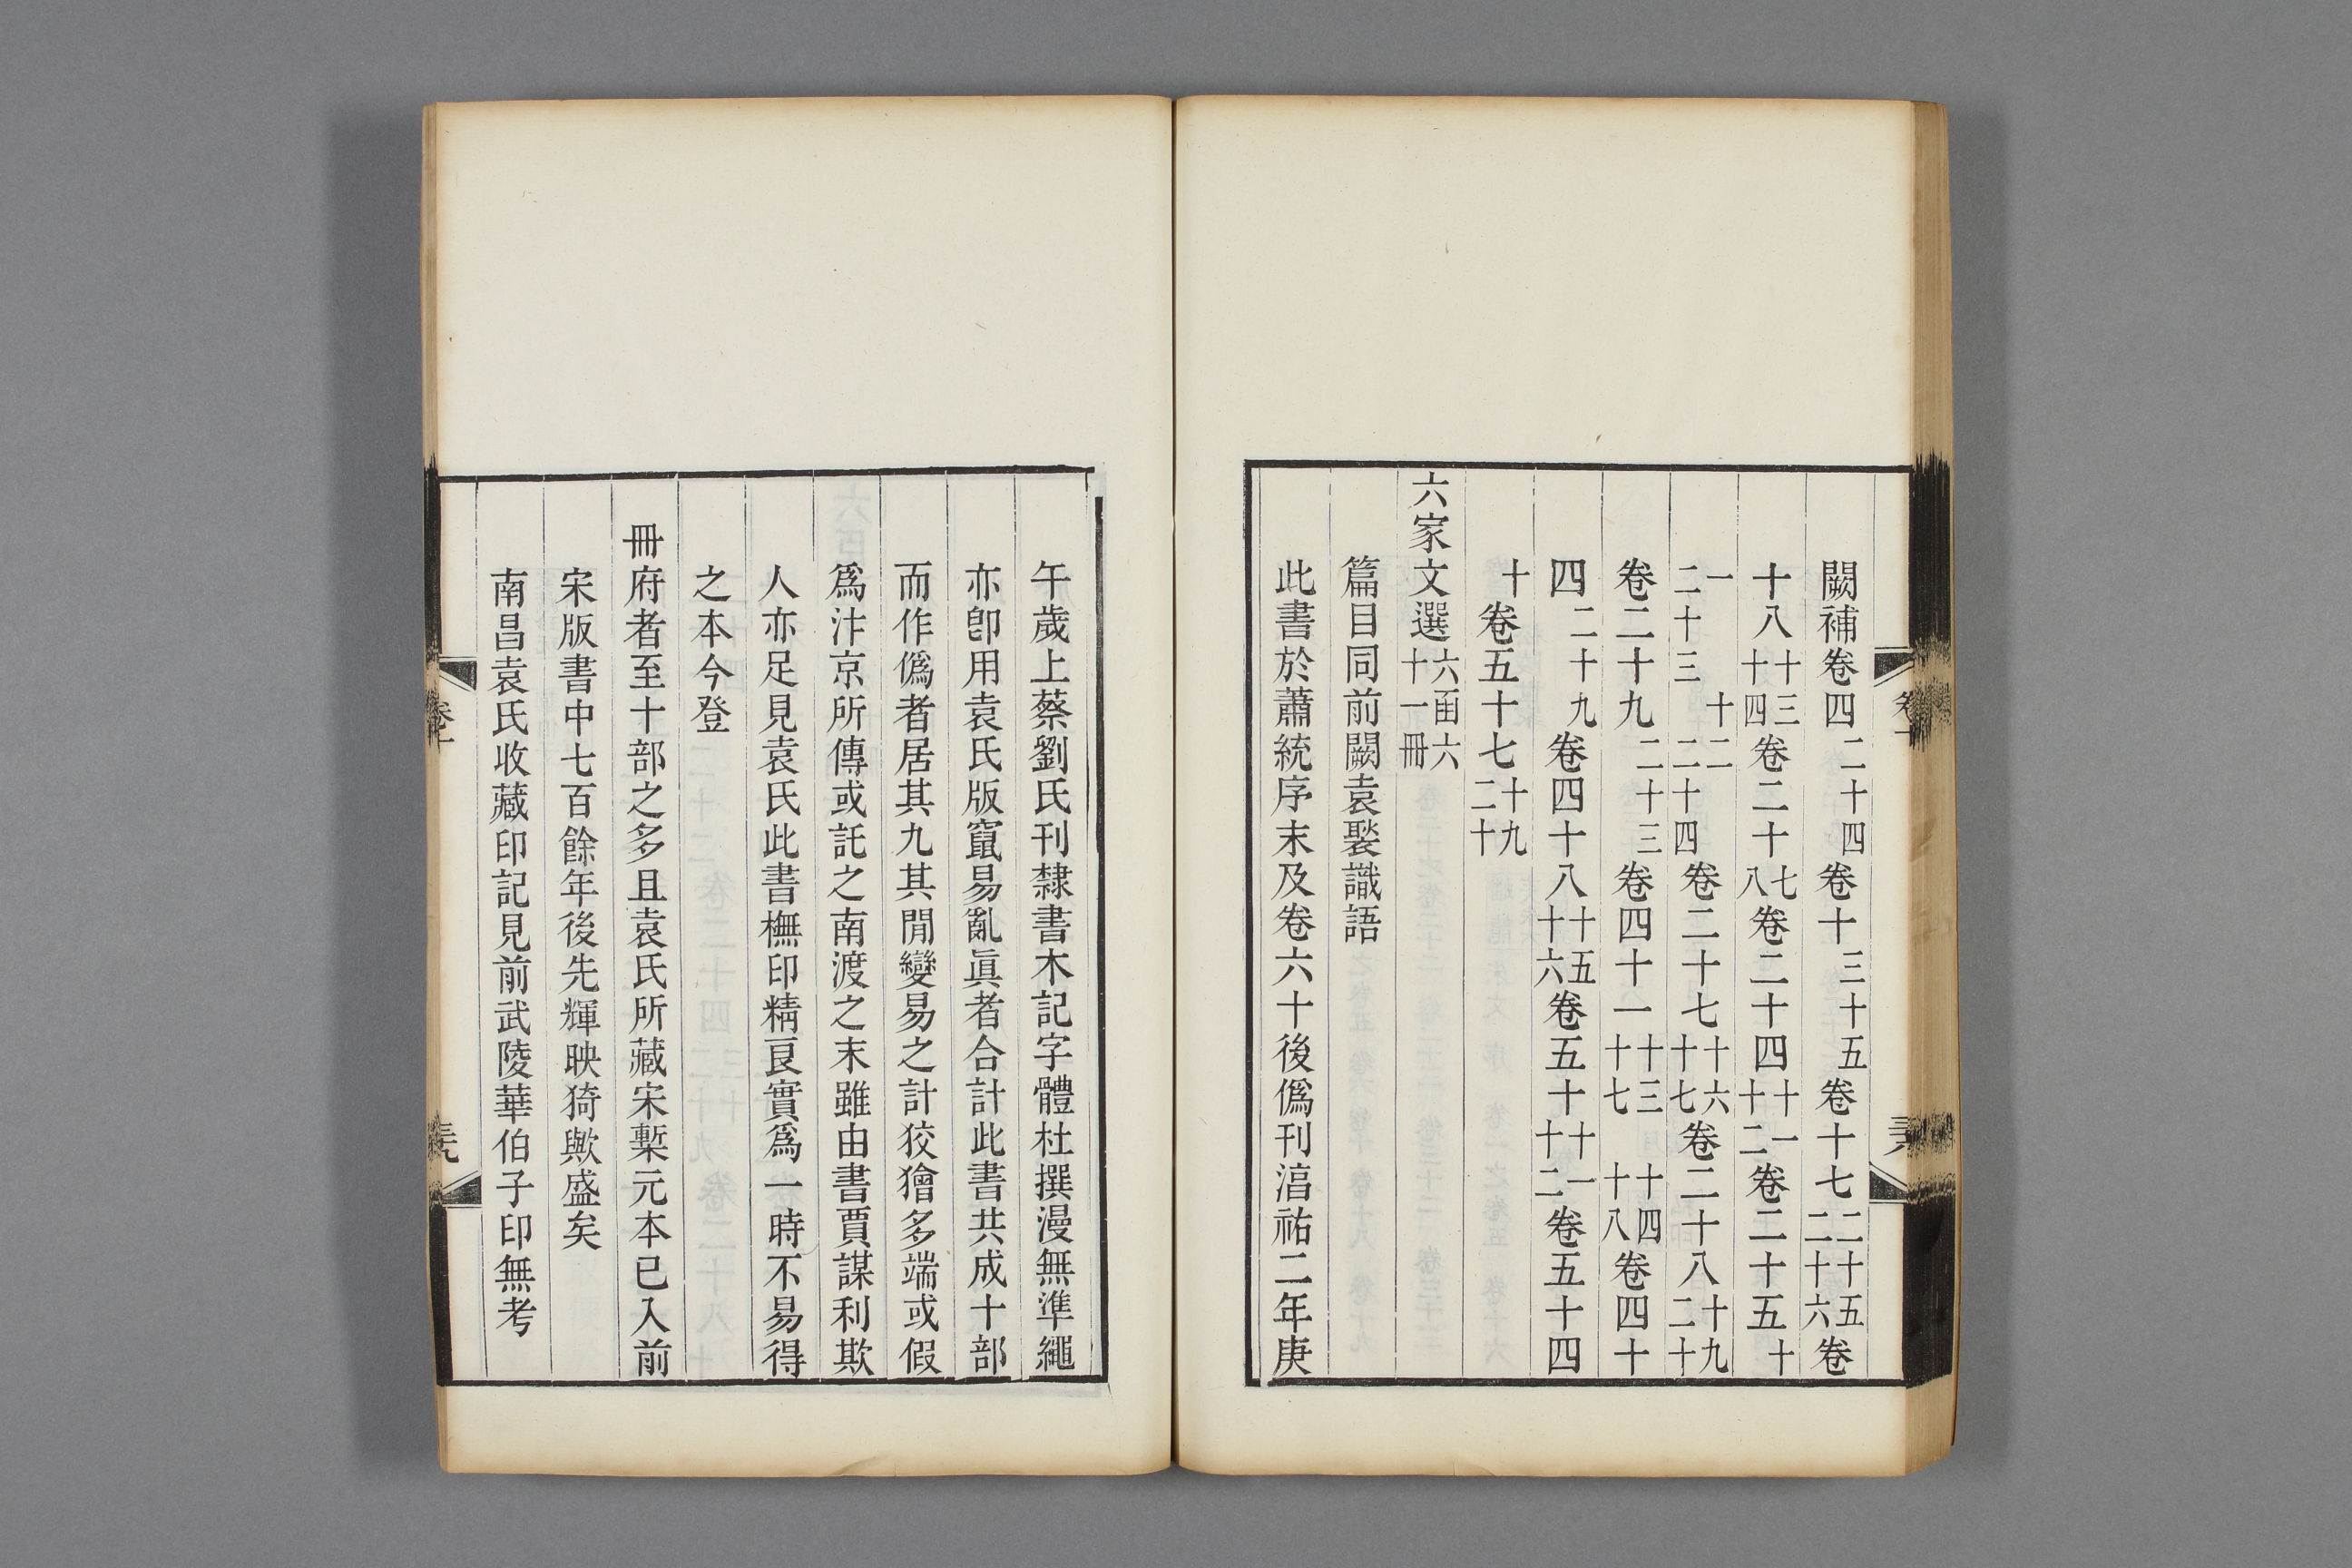 闕補卷四二十四卷十三三十五卷十七二十五二十六卷
十八十三十四卷二十七八卷二十四十一十二卷二十五十
一十二二十三二十四卷二十七十六十七卷二十八十九二十
卷二十九二十三卷四十一十三十七十四十八卷四十
四二十九卷四十八十五十六卷五十十一十二卷五十四
十卷五十七十九二十
六家文選六函六十一冊
篇目同前闕袁褧識語
此書於蕭統序末及卷六十後僞刊淳祐二年庚
午歲上蔡劉氏刊隸書木記字體杜撰漫無準繩
亦卽用袁氏版竄易亂眞者合計此書共成十部
而作僞者居其九其閒變易之計狡獪多端或假
爲汴京所傳或託之南渡之末雖由書賈謀利欺
人亦足見袁氏此書橅印精良實爲一時不易得
之本今登
冊府者至十部之多且袁氏所藏宋槧元本已入前
宋版書中七百餘年後先輝映猗歟盛矣
南昌袁氏收藏印記見前武陵華伯子印無考
卷十